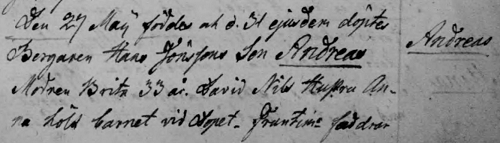 Den 27 Maÿ föddes och d. 31 ejusdem döptes
Bergaren Hans Jönssons Son Andreas Andreas
Modren Brita 33 ac. David Nils Hustru An-
na höll barnet vid Dopet- Framtime faddrar